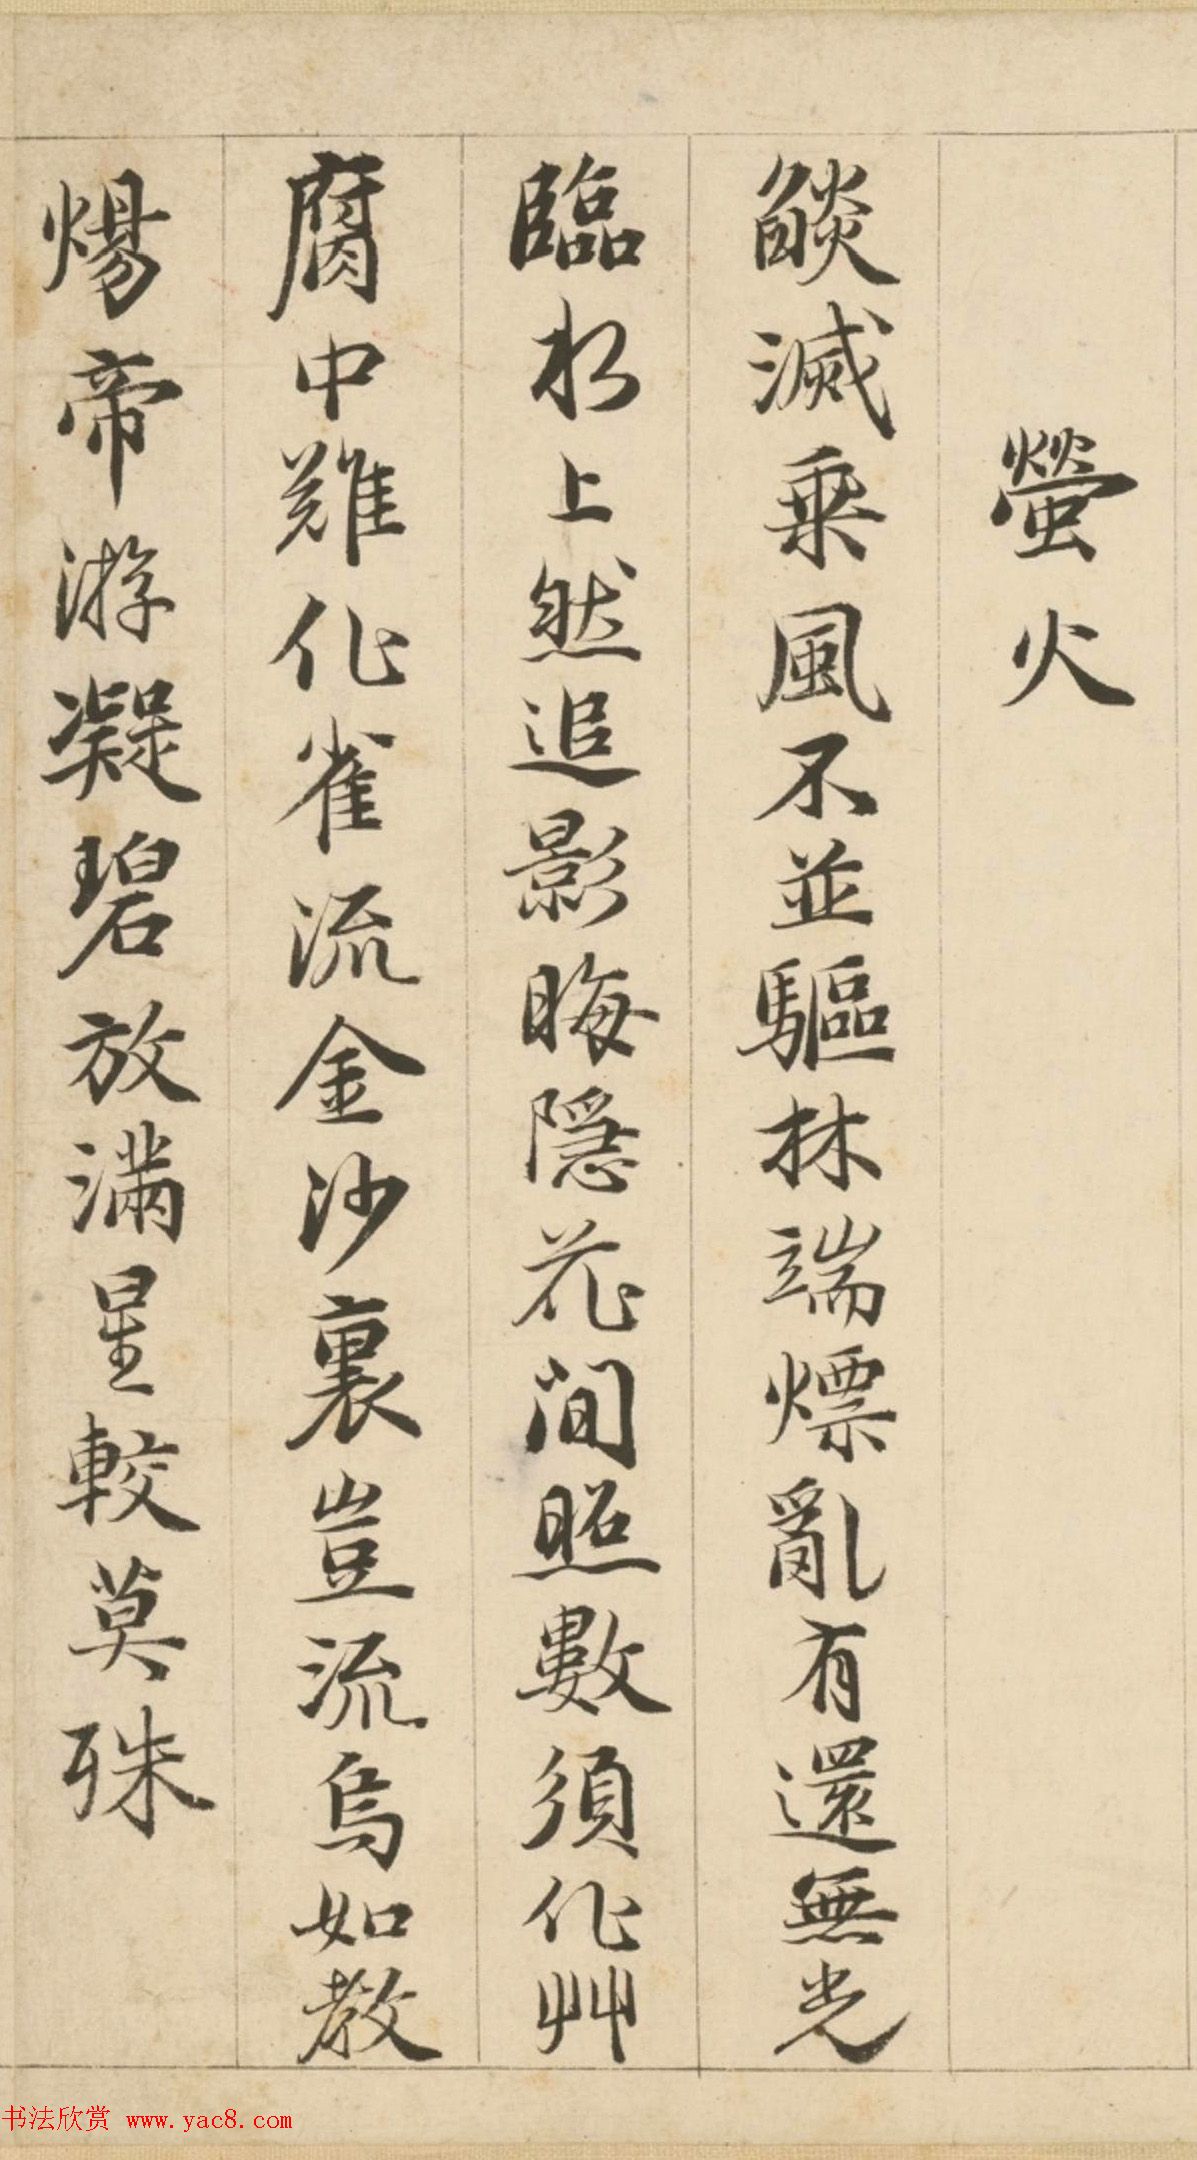 螢火
燄滅乘風不並驅林端熛亂有還無光
臨水上然追影晦隱花間照數須化艸
腐中難化雀流金沙裏豈流烏如教
煬帝游凝碧放滿星較莫殊
书法欣赏 www.yac8.com